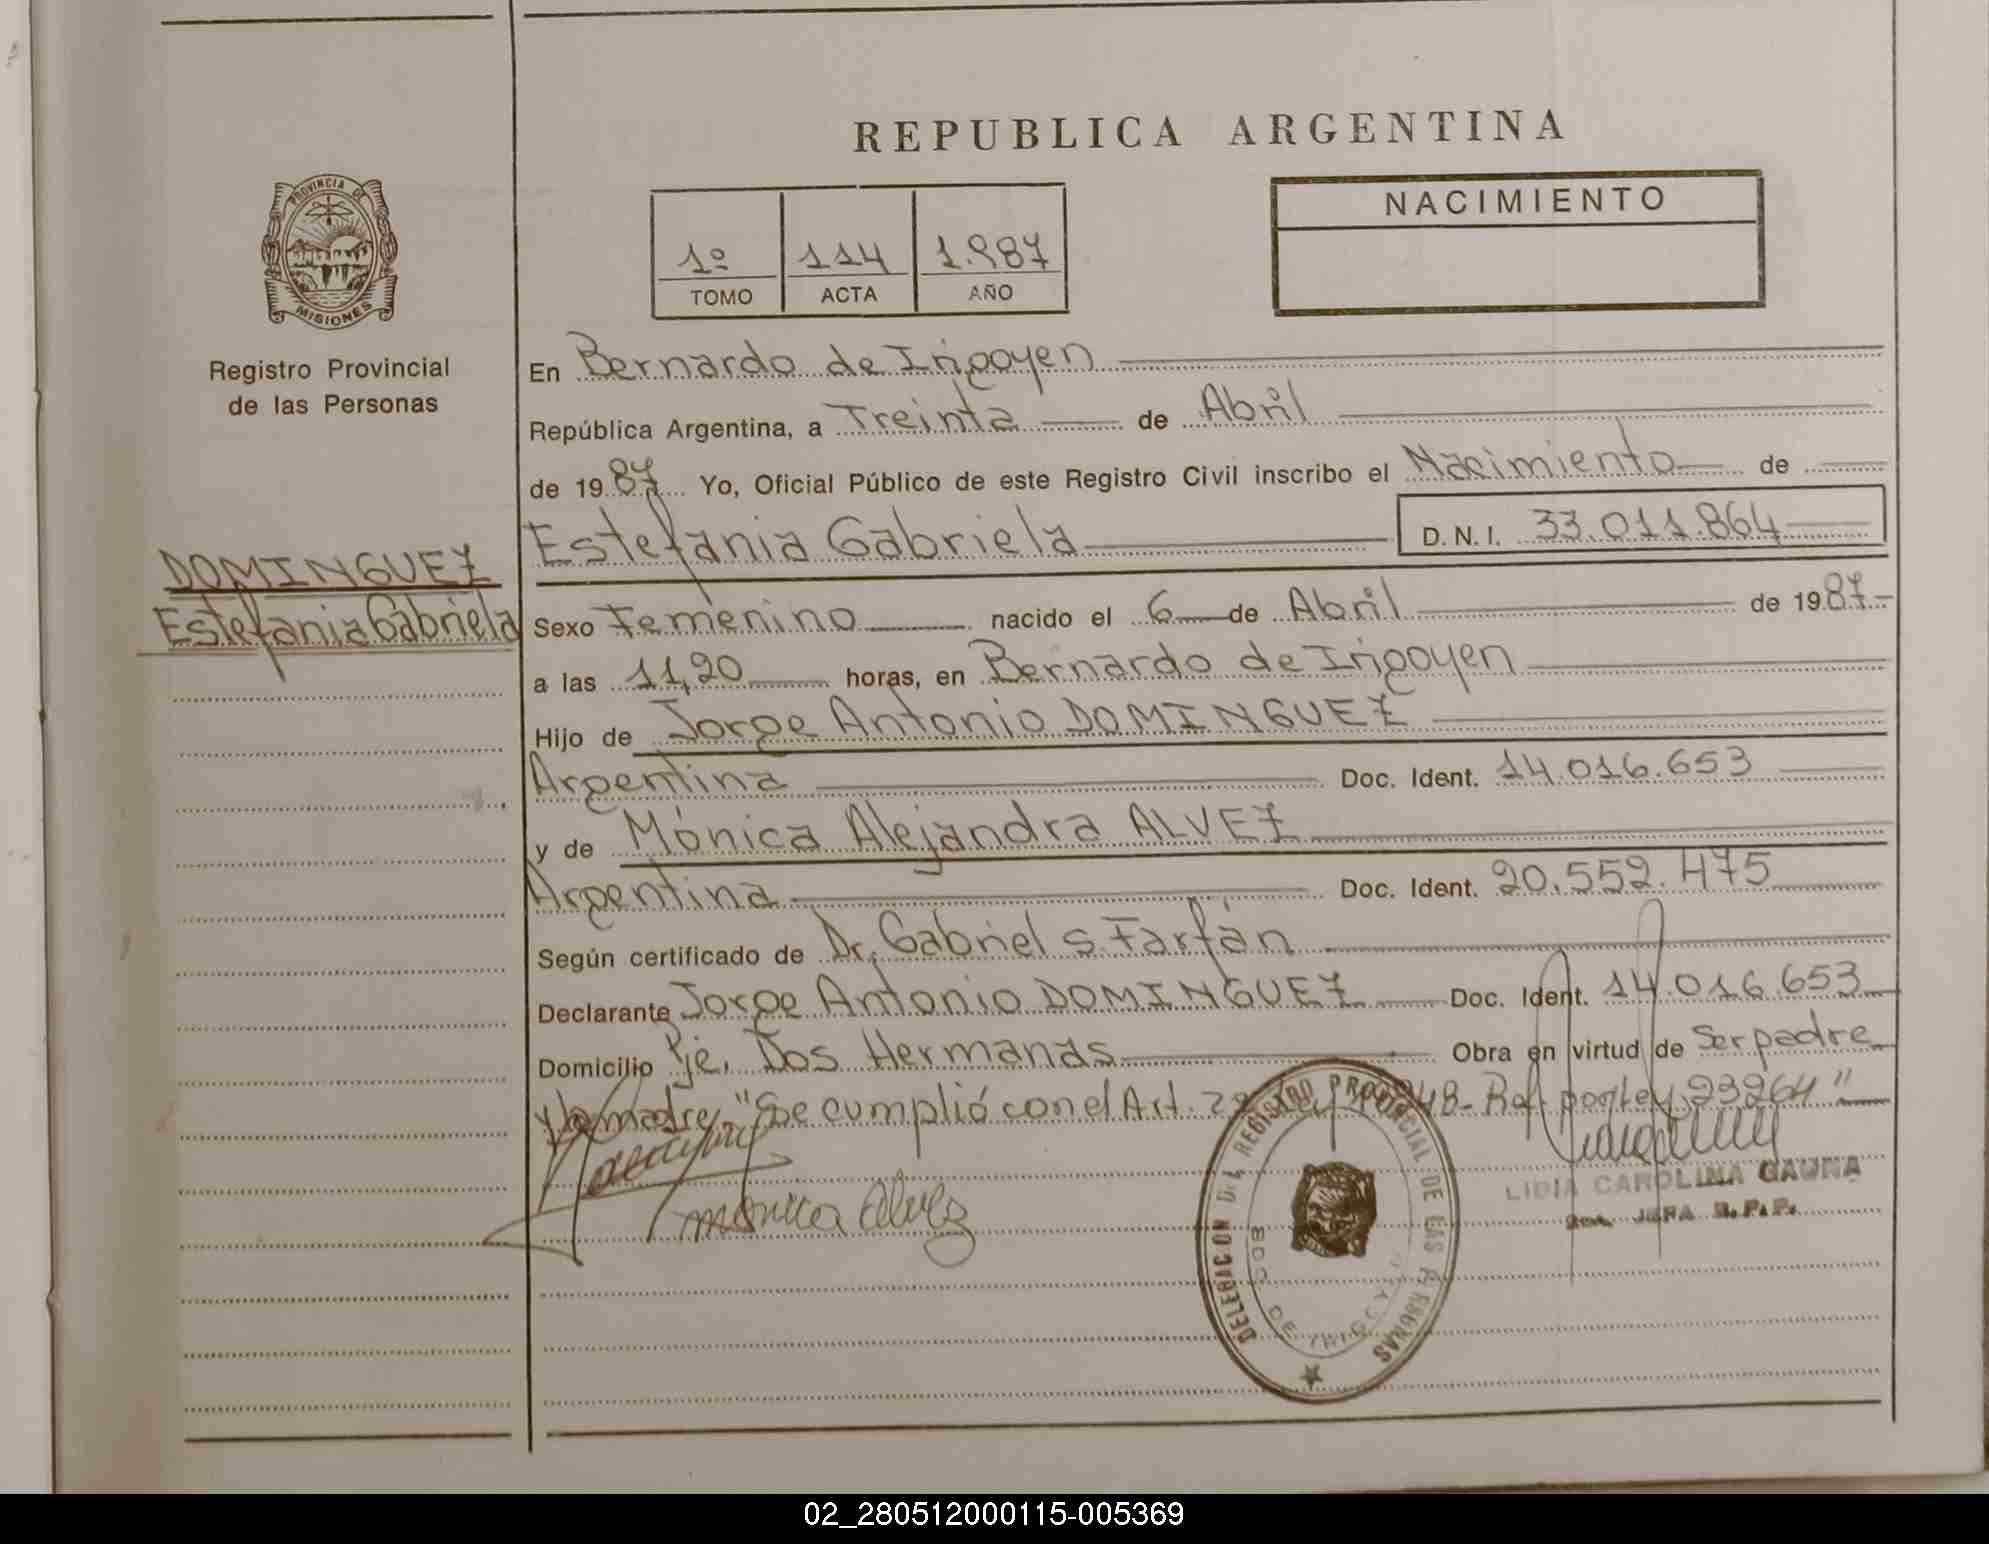 REPUBLICA ARGENTINA
PROVINCIA DE
MISIONES
Registro Provincial
de las Personas
1º 114 1.987
TOMO ACTA AÑO
NACIMIENTO
En Bernardo de Irigoyen
República Argentina, a Treinta de Abril
de 1987 Yo, Oficial Público de este Registro Civil inscribo el Nacimiento de
Estefania Gabriela D.N.I. 33.011.864
DOMINGUEZ
Estefania Gabriela
Sexo Femenino nacido el 6 de Abril de 1987
a las 11,20 horas, en Bernardo de Irigoyen
Hijo de Jorge Antonio DOMINGUEZ
Argentina Doc. Ident. 14.016.653
y de Mónica Alejandra ALVEZ
Argentina Doc. Ident. 20.552.475
Según certificado de Dr. Gabriel S. Farfán
Declarante Jorge Antonio DOMINGUEZ Doc. Ident. 14.016.653
Domicilio Pje. Dos Hermanas Obra en virtud de Ser padre
y la madre, "Se cumplió con el Art. Ref. por Ley 23264"
Monica Alvez
DELEGACION DEL REGISTRO PROVINCIAL DE LAS PERSONAS
BDO. DE IRIGOYEN
LIDIA CAROLINA GAUNA
JEFA R.P.P.
02_280512000115-005369